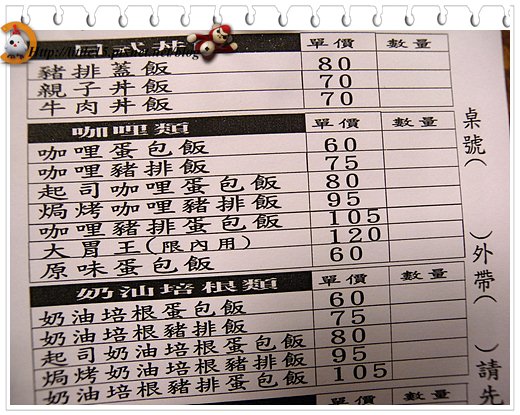 單價 數量
豬排蓋飯 80
親子丼飯 70
牛肉丼飯 70
咖哩類 單價 數量
咖哩蛋包飯 60
咖哩豬排飯 75
起司咖哩蛋包飯 80
焗烤咖哩豬排飯 95
咖哩豬排蛋包飯 105
大胃王(限內用) 120
原味蛋包飯 60
奶油培根類 單價 數量
奶油培根蛋包飯 60
奶油培根豬排飯 75
起司奶油培根蛋包飯 80
焗烤奶油培根豬排飯 95
奶油培根豬排蛋包飯 105
桌號( )外帶( )請先